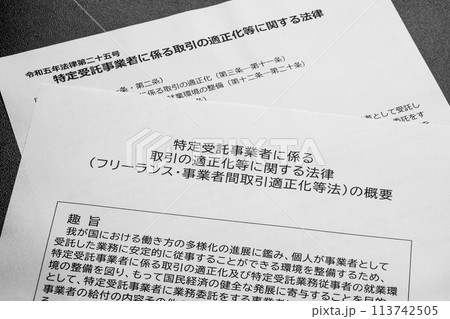 令和五年法律第二十五号
特定受託事業者に係る取引の適正化等に関する法律
条・第二条）
に係る取引の適正化（第三条―第十一条）
就業環境の整備（第十二条―第二十条）
者として受託し
特定受託事業者に係る
取引の適正化等に関する法律
（フリーランス・事業者間取引適正化等法）の概要
趣 旨
我が国における働き方の多様化の進展に鑑み、個人が事業者として
受託した業務に安定的に従事することができる環境を整備するため、
特定受託事業者に係る取引の適正化及び特定受託業務従事者の就業環
境の整備を図り、もって国民経済の健全な発展に寄与することを目的
として、特定受託事業者に業務委託をする事業
事業者の給付の内容その他
PIXTA
pixta.jp - 113742505